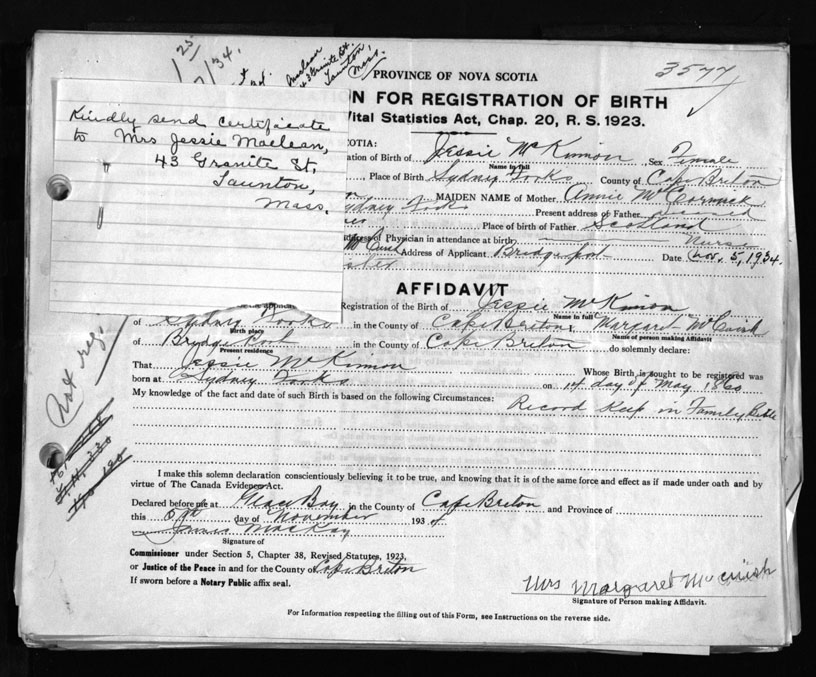 25
/34.
Maclean
43 Granite St.
Taunton,
Mass.
3577
PROVINCE OF NOVA SCOTIA
ON FOR REGISTRATION OF BIRTH
Vital Statistics Act, Chap. 20, R. S. 1923.
Kindly send certificate
to Mrs Jessie Maclean,
43 Granite St,
Taunton,
Mass.
COTIA:
ation of Birth of Jessie McKinnon Sex Female
Name in full
Place of Birth Sydney Forks County of Cape Breton
MAIDEN NAME of Mother Annie McCormack
Sydney Forks Present address of Father
Place of birth of Father Scotland
ddress of Physician in attendance at birth Nurse
McCuish Address of Applicant Bridgeport Date Nov. 5, 1934.
AFFIDAVIT
Registration of the Birth of Jessie McKinnon
Name in full
of Sydney Forks in the County of Cape Breton I, Margaret McCuish
Birth place Name of person making Affidavit
of Bridgeport in the County of Cape Breton do solemnly declare:
Present residence
That Jessie McKinnon Whose Birth is sought to be registered was
born at Sydney Forks on 14 day of May 1860
My knowledge of the fact and date of such Birth is based on the following Circumstances: Record Keep in Family Bible
Not regs
I make this solemn declaration conscientiously believing it to be true, and knowing that it is of the same force and effect as if made under oath and by
virtue of The Canada Evidence Act.
Declared before me at Glace Bay in the County of Cape Breton and Province of
this 6th day of November 1934
James MacKay
Signature of
Commissioner under Section 5, Chapter 38, Revised Statutes, 1923,
or Justice of the Peace in and for the County of Cape Breton
If sworn before a Notary Public affix seal.
Mrs Margaret McCuish
Signature of Person making Affidavit.
For Information respecting the filling out of this Form, see Instructions on the reverse side.